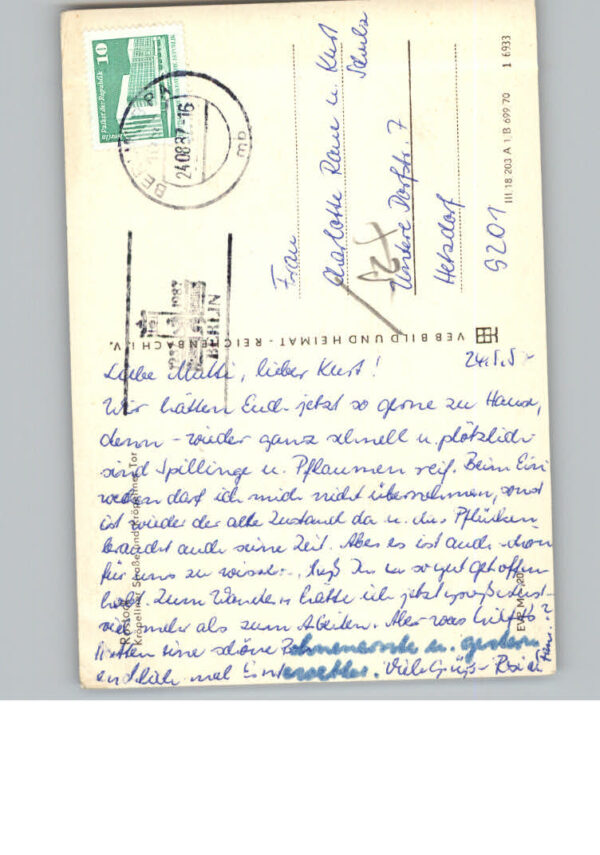 10
Palast der Republik
BERLIN
24.08.87-16
mb
BERLIN
Frau
Charlotte Rau u. Kurt
Schulz
Untere Dorfstr. 7
Hetzdorf
9201
III 18 203 A 1 B 699 70 1 6933
VEB BILD UND HEIMAT · REICHENBACH i. V.
Rostock
Kröpeliner Straße und Kröpeliner Tor
Liebe Mutti, lieber Kurt!
Wir hätten Euch jetzt so gerne zu Hause,
denn - wieder ganz schnell u. plötzlich
sind Spillinge u. Pflaumen reif. Beim Ein
wecken darf ich mich nicht übernehmen, sonst
ist wieder der alte Zustand da u. das Pflücken
braucht auch seine Zeit. Aber es ist auch schon
für uns zu wissen, daß Ihr es so gut getroffen
habt. Zum Wandern hätte ich jetzt große Lust
viel mehr als zum Arbeiten. Aber was hilft's
Hatten eine schöne Bohnenernte u. gestern
endlich mal wetter. Viele Grüße Rosi